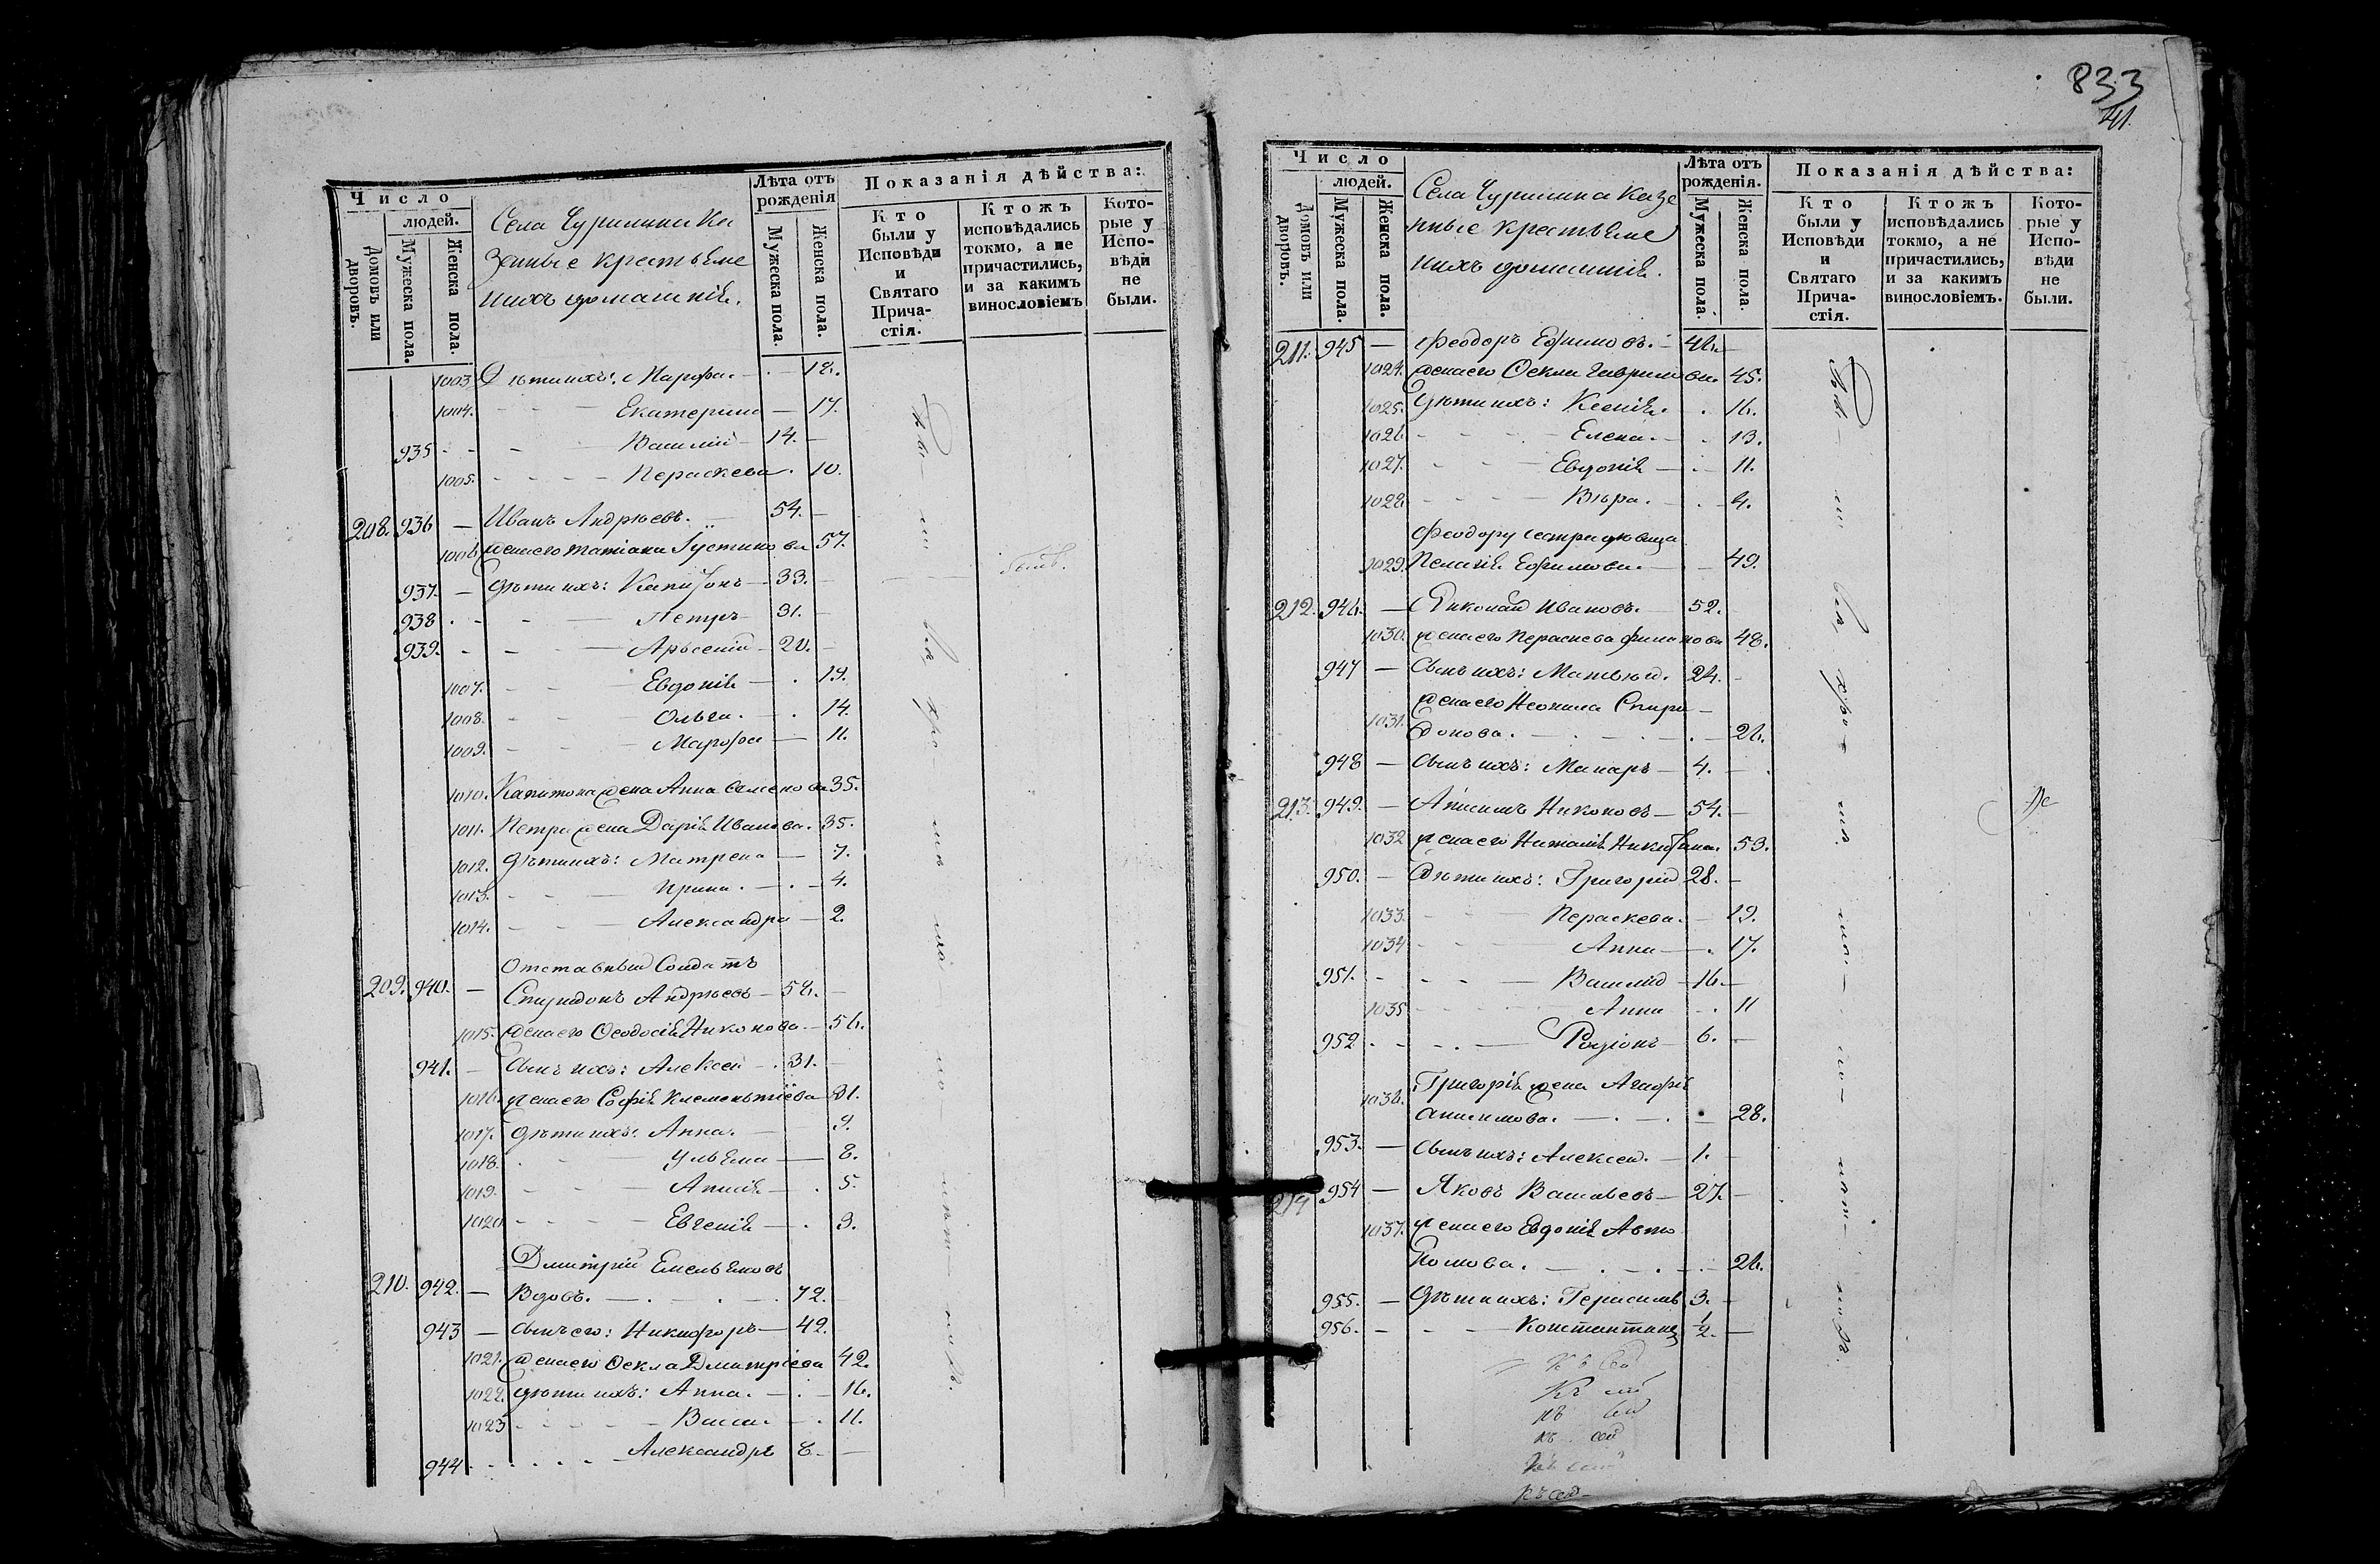 833
41.
Число
людей.
Домовъ или дворовъ.
Мужеска пола.
Женска пола.
Села Чурилина Ка
зенные крестьяне
и ихъ домашнiе.
Лѣта отъ рожденiя
Мужеска пола.
Женска пола.
Показанiя дѣйства:
Кто были у Исповѣди и Святаго Прича- стiя.
Ктожъ исповѣдались токмо, а не причастились, и за какимъ винословiемъ
Кото- рые у Испо- вѣди не были.
1003 Дѣти ихъ: Марфа. 18.
1004. Екатерина 17.
935 Василiй 14.
1005. Параскева 10.
208. 936 Иванъ Андрѣевъ. 54.
1006 жена его Татiана Iустинова 57.
937. дѣти ихъ: Капитонъ 33.
938 Петръ 31.
939. Арьсенiй 20.
1007. Евдокiя 19.
1008. Ольга. 14.
1009. Марфа 11.
1010. Капитона жена Анна Семенова 35.
1011. Петра жена Дарiя Иванова. 35.
1012. дѣти ихъ: Матрена 7.
1013. Ирина. 4.
1014. Александра 2.
Отставный Солдатъ
209. 940. Спиридонъ Андрѣевъ 58.
1015. жена его Ѳеодосiя Никонова 56.
941. Сынъ ихъ: Алексей 31.
1016. жена его Софiя Клементiева 31.
1017. дѣти ихъ: Анна. 9.
1018. Ульяна 8.
1019. Анисiя 5.
1020 Евгенiя 3.
Дмитрiй Емельяновъ
210. 942. Вдовъ. 72.
943 Сынъ его: Никифоръ 42.
1021. жена его Ѳекла Дмитрiева 42.
1022. дѣти ихъ: Анна. 16.
1023 Васса. 11.
944 Александръ 8.
Число
людей.
Домовъ или дворовъ.
Мужеска пола.
Женска пола.
Села Чурилина Казе
нные крестьяне
и ихъ домашнiе.
Лѣта отъ рожденiя.
Мужеска пола.
Женска пола.
Показанiя дѣйства:
Кто были у Исповѣди и Святаго Прича- стiя.
Ктожъ исповѣдались токмо, а не причастились, и за какимъ винословiемъ.
Кото- рые у Испо- вѣди не были.
211. 945 Феодоръ Ефимовъ. 46.
1024. жена его Ѳекла Гаврилова. 45.
1025. Дѣти ихъ: Ксенiя. 16.
1026 Елена. 13.
1027. Евдокiя 11.
1028 Вѣра. 4.
Феодору сестра дѣвица
1029. Пелагiя Ефимова. 49.
212. 946. Николай Ивановъ. 52.
1030. жена его Параскева 48.
947 Сынъ ихъ: Матвѣй. 24.
жена его Неонила Спири
1031. донова. 26.
948 Сынъ ихъ: Макаръ 4.
213. 949. Анисимъ Никоновъ 54.
1032 жена его Наталiя Никитина. 53.
950. Дѣти ихъ: Григорiй 28.
1033. Параскева. 19.
1034 Анна 17.
951. Василiй 16
1035 Анна 11
952 Родiонъ 6.
Григорiя жена Агафiя
1036. Анисимова. 28.
953. Сынъ ихъ: Алексей. 1.
214 954 Яковъ Васильевъ 27.
1037. жена его Евдокiя Авто
номова. 26.
955. Дѣти ихъ: Герасимъ 3.
956. Константинъ 1/2.